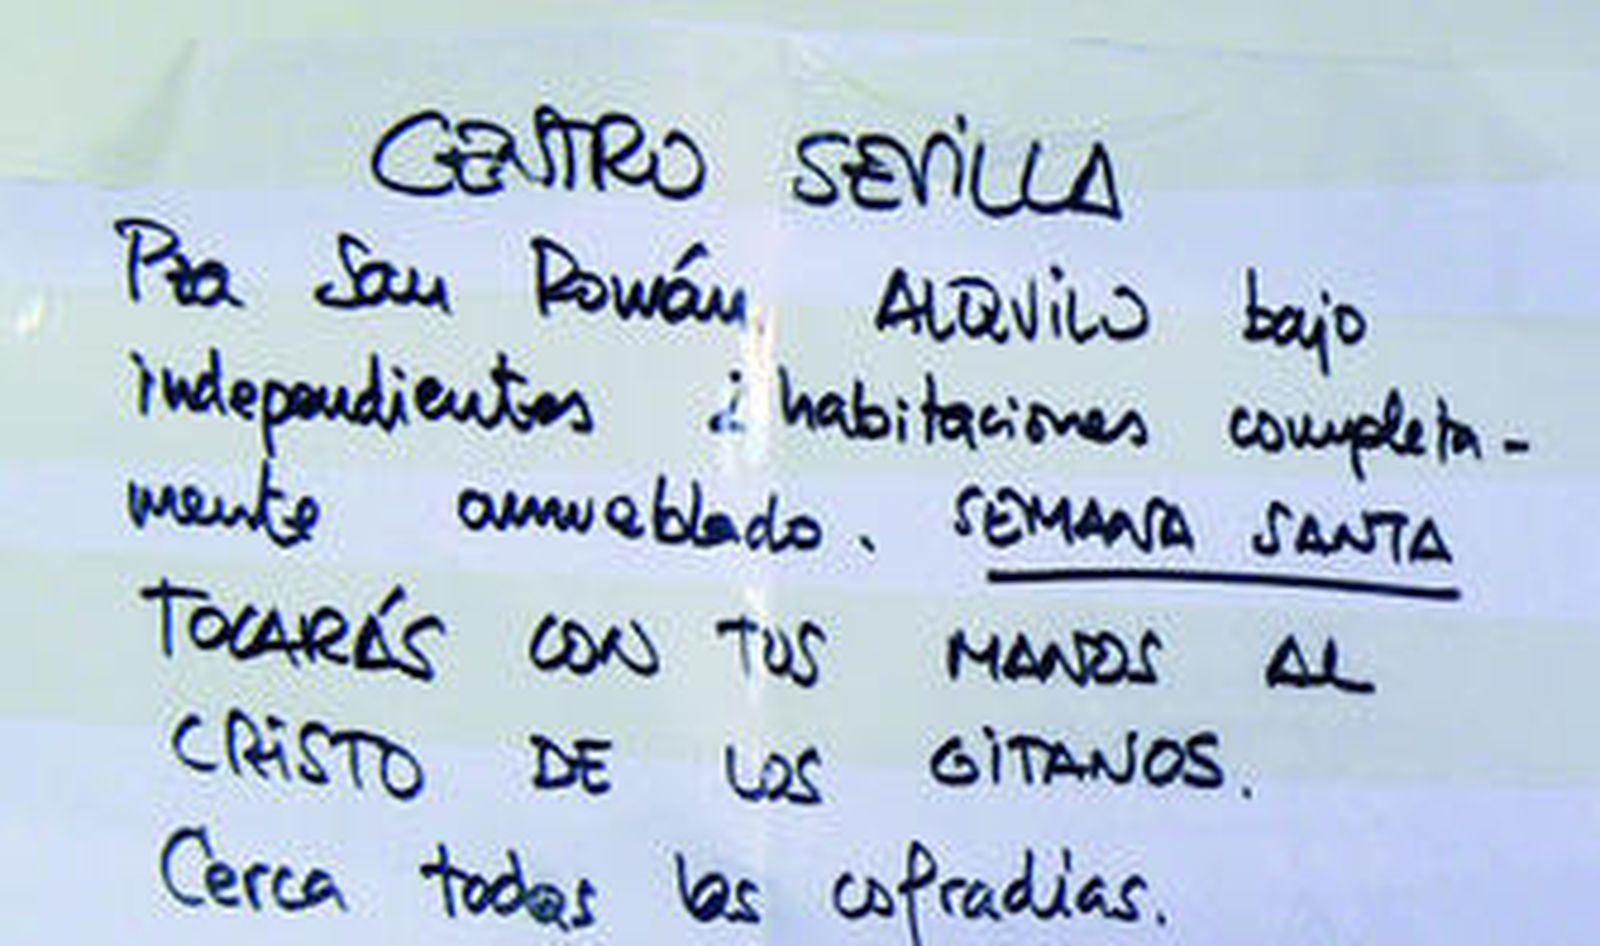 CENTRO SEVILLA
Pza San Román ALQUILO bajo
independientes habitaciones completa-
mente amueblado. SEMANA SANTA
TOCARÁS CON TUS MANOS AL
CRISTO DE LOS GITANOS.
Cerca todas las cofradías.